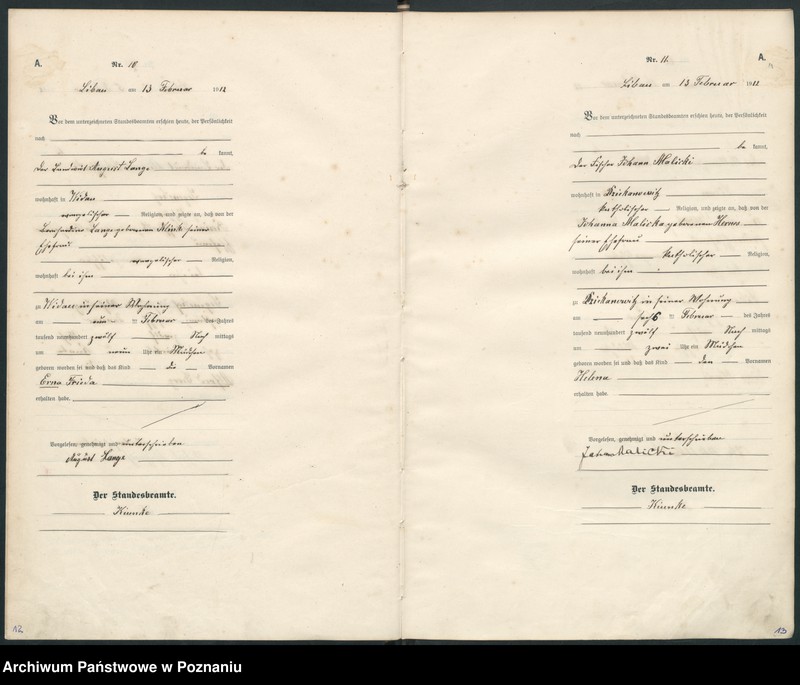 A.
Nr. 10
Liban am 13 Februar 1912
Vor dem unterzeichneten Standesbeamten erschien heute, der Persönlichkeit
nach
be kannt,
der Landwirt August Lange
wohnhaft in Widau
evangelischer Religion, und zeigte an, daß von der
Lange geborenen Klink seiner
Ehefrau
evangelischer Religion,
wohnhaft bei ihm
zu Widau in seiner Wohnung
am Februar des Jahres
tausend neunhundert zwölf Nach mittags
um neun Uhr ein Mädchen
geboren worden sei und daß das Kind die Vornamen
Erna Frieda
erhalten habe.
Vorgelesen, genehmigt und unterschrieben
August Lange
Der Standesbeamte.
Kinnke
12
A.
Nr. 11.
Liban am 13 Februar 1912
Vor dem unterzeichneten Standesbeamten erschien heute, der Persönlichkeit
nach
be kannt,
der Fischer Johann Malicki
wohnhaft in Dziekanowitz
katholischer Religion, und zeigte an, daß von der
Johanna Malicka geborenen
seiner Ehefrau
katholischer Religion,
wohnhaft bei ihm
zu Dziekanowitz in seiner Wohnung
am sechs ten Februar des Jahres
tausend neunhundert zwölf Nach mittags
um zwei Uhr ein Mädchen
geboren worden sei und daß das Kind den Vornamen
Helena
erhalten habe.
Vorgelesen, genehmigt und unterschrieben
Johann Malicki
Der Standesbeamte.
Kinnke
13
Archiwum Państwowe w Poznaniu